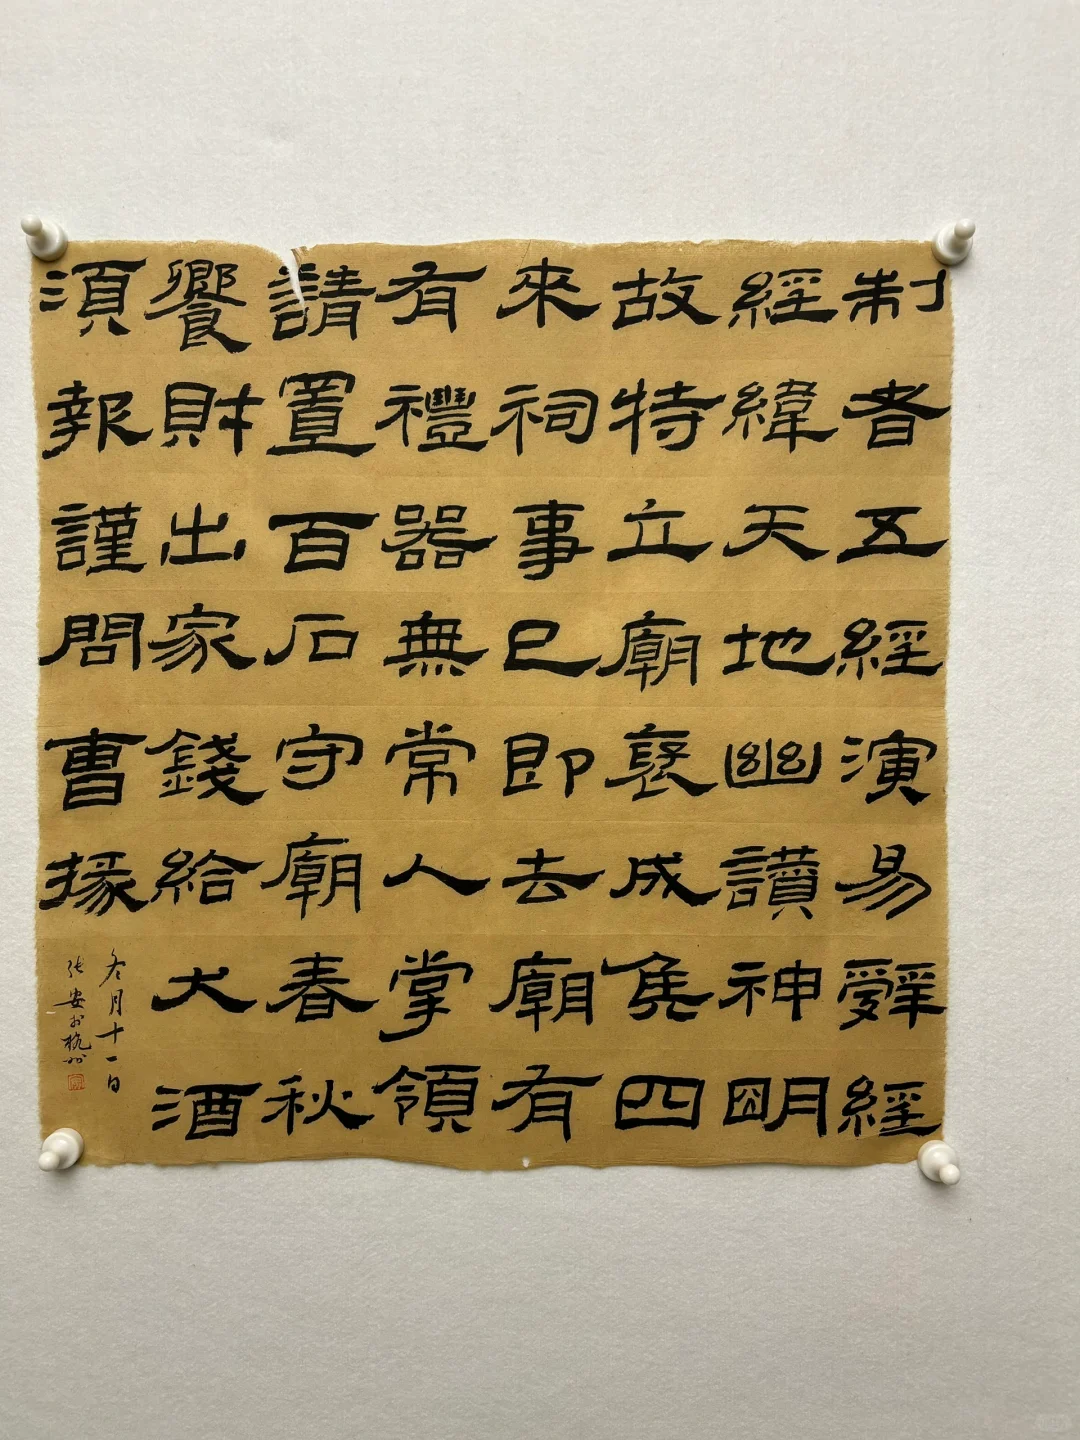 制者五經演易辭經
經緯天地幽讚神明
故特立廟褒成侯四
來祠事已即去廟有
有禮器無常人掌領
請置百石守廟春秋
饗財出家錢給犬酒
須報謹問曹掾
冬月十一日
张安於杭州